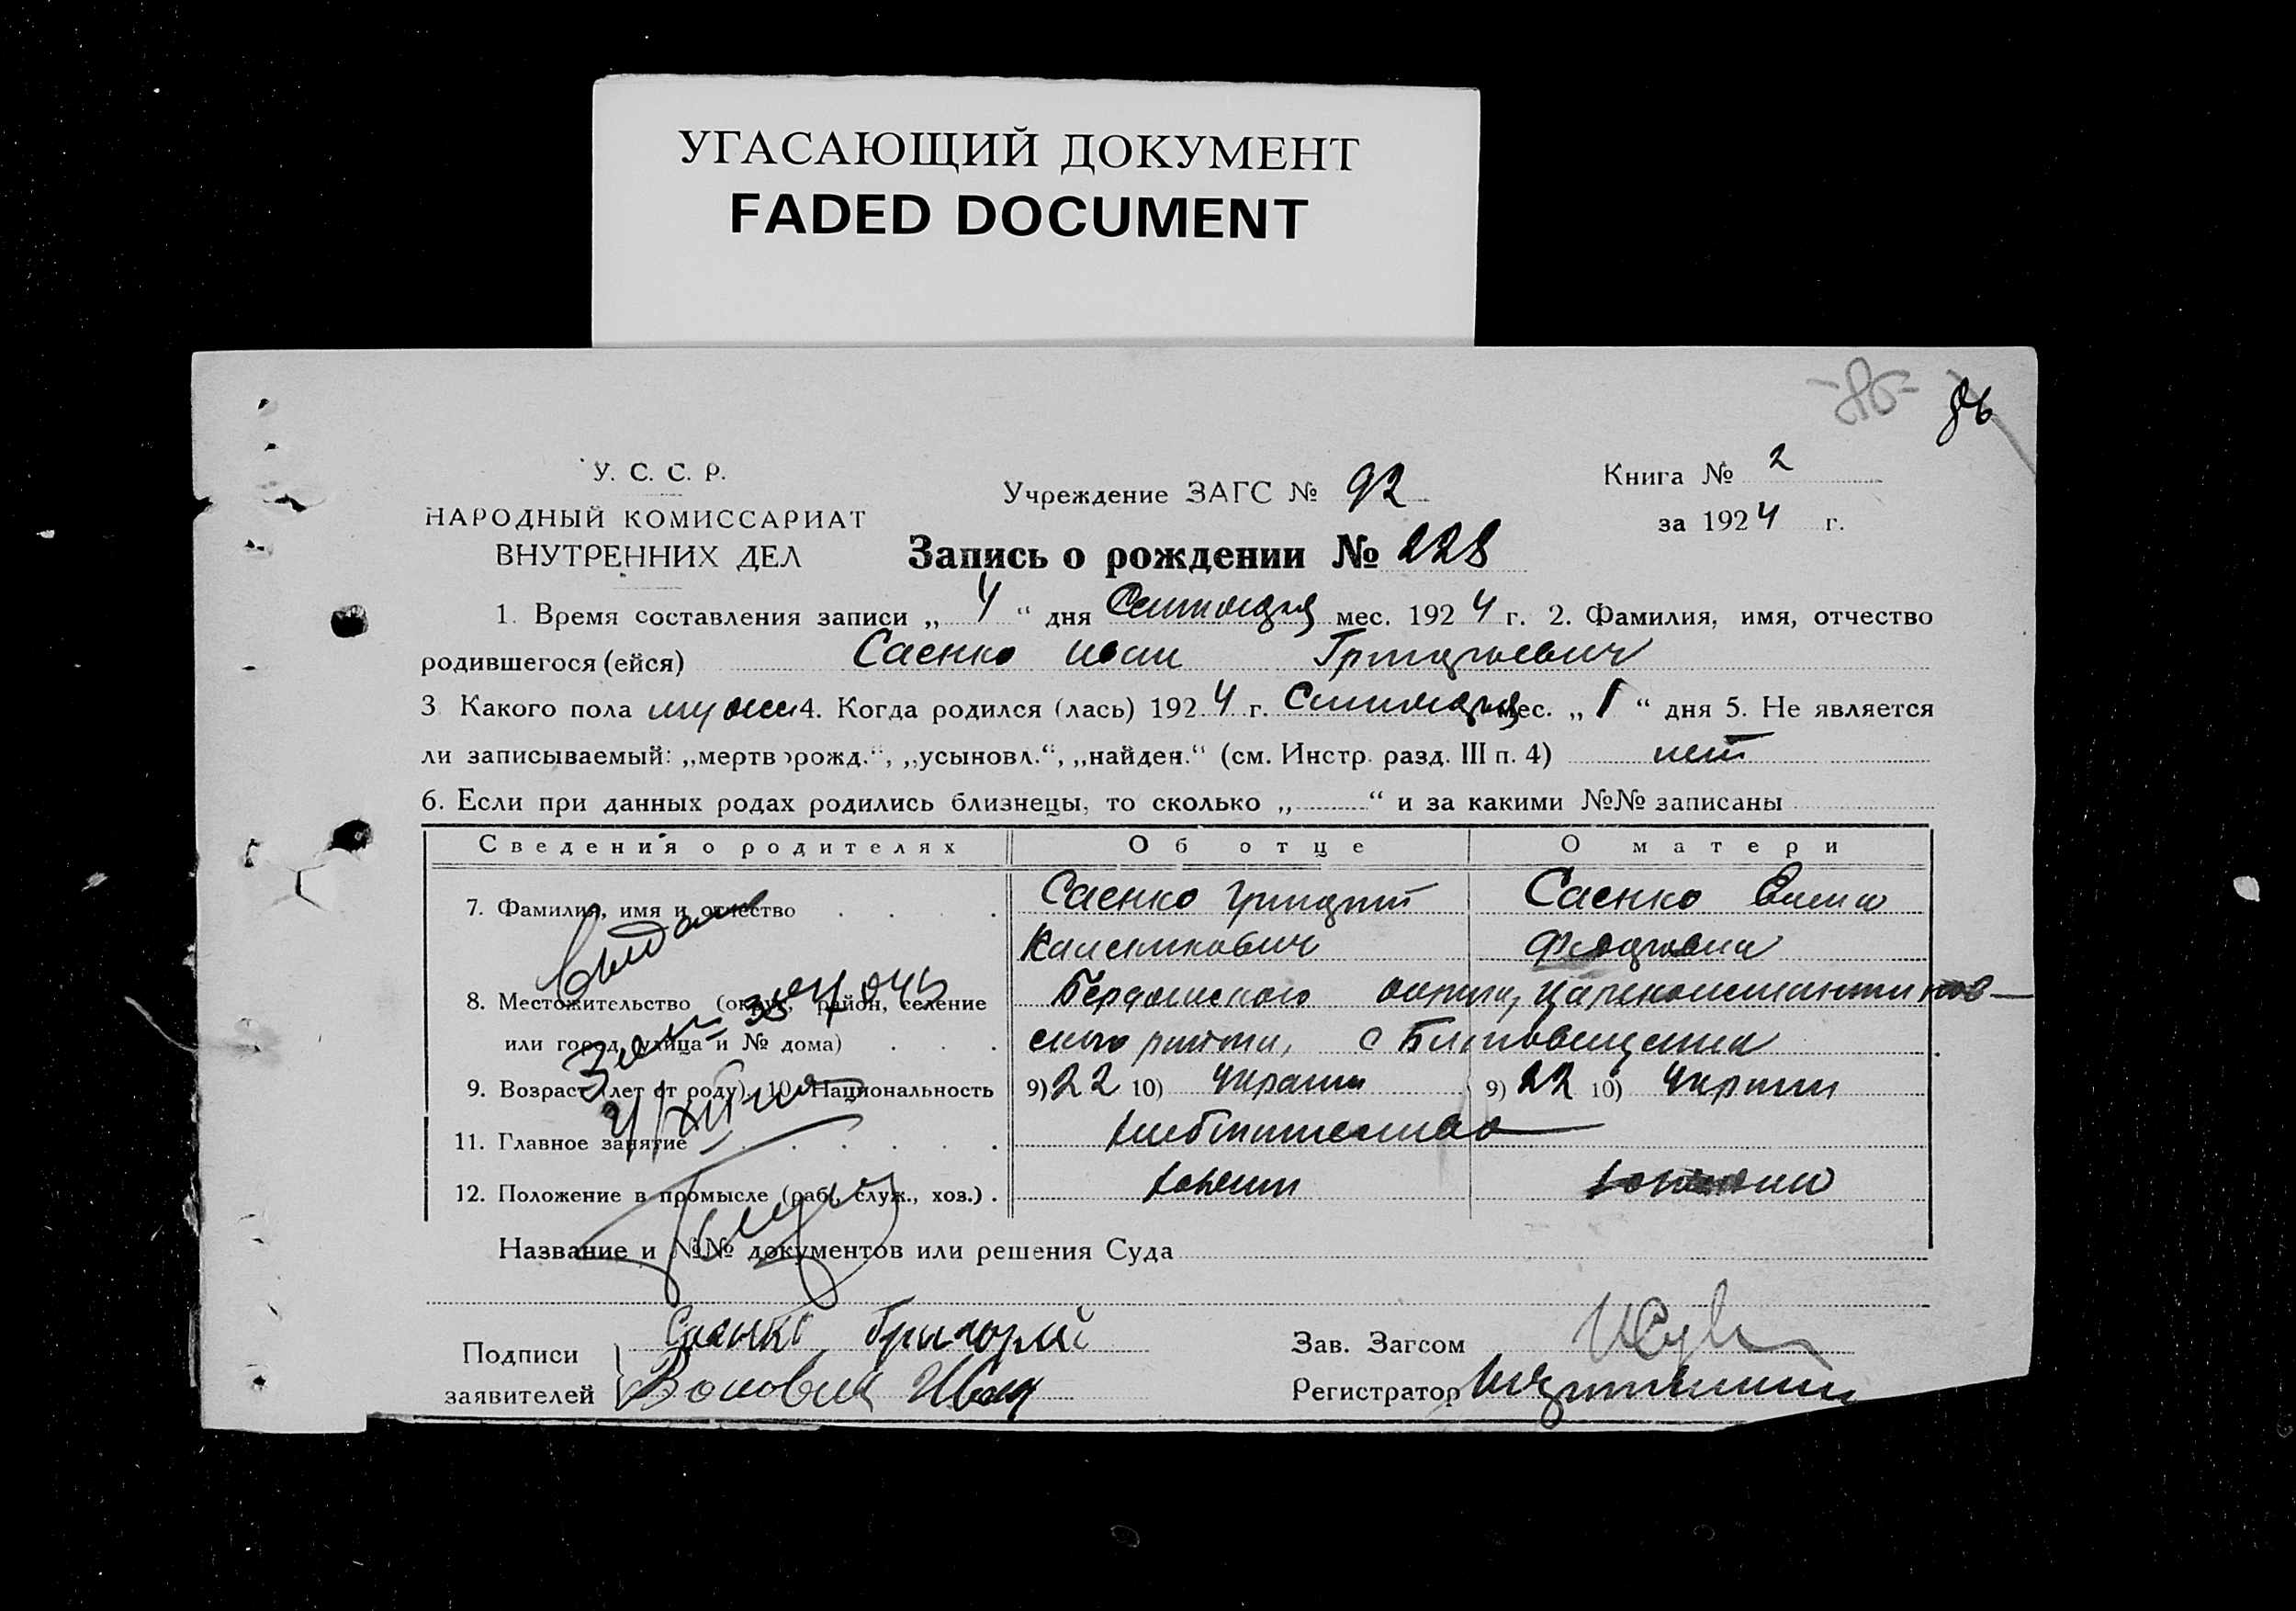 УГАСАЮЩИЙ ДОКУМЕНТ
FADED DOCUMENT
86
У. С. С. Р.
НАРОДНЫЙ КОМИССАРИАТ
ВНУТРЕННИХ ДЕЛ
Учреждение ЗАГС № 92
Книга № 2
за 1924 г.
Запись о рождении № 228
1. Время составления записи „ 4 “ дня Сентября мес. 1924 г. 2. Фамилия, имя, отчество
родившегося (ейся) Саенко Иван Григорьевич
3 Какого пола мужск 4. Когда родился (лась) 1924 г. Сентября мес. „ 1 “ дня 5. Не является
ли записываемый: „мертворожд.“, „усыновл.“, „найден.“ (см. Инстр. разд. III п. 4) нет
6. Если при данных родах родились близнецы, то сколько „ “ и за какими №№ записаны
Сведения о родителях Об отце О матери
7. Фамилия, имя и отчество Саенко Григорий Саенко
Федоровна
8. Местожительство (округ, район, селение Бердянского округа, Цареконстантинов-
или город, улица и № дома) ского района, с Благовещенка
9. Возраст (лет от роду) 10. Национальность 9) 22 10) Украин 9) 22 10) Украин
11. Главное занятие хлебопашество
12. Положение в промысле (раб., служ., хоз.) хозяин
Название и №№ документов или решения Суда
Подписи Саенко Григорий
заявителей Иван
Зав. Загсом
Регистратор